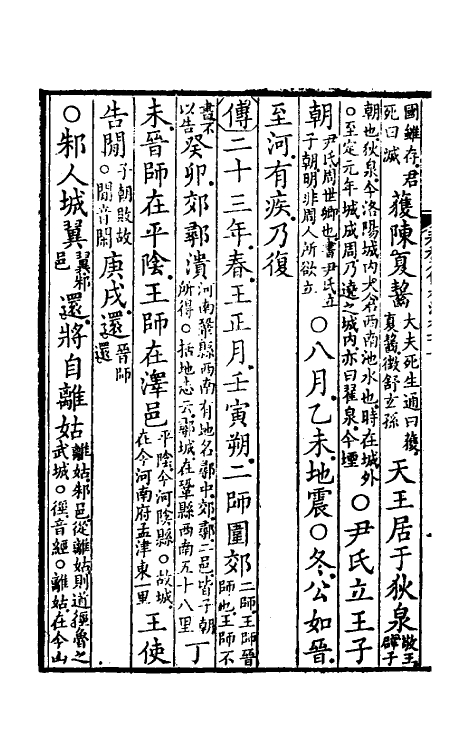 國雖存君死曰滅獲陳夏齧大夫死生通曰獲夏齧徵舒玄孫天王居于狄泉敬王辟子
朝也狄泉今洛陽城內大倉西南池水也時在城外○至定元年城成周乃遶之城內亦曰翟泉今堙○尹氏立王子
朝尹氏周世卿也書尹氏立子朝明非周人所欲立○八月乙未地震○冬公如晉
至河有疾乃復
傳二十三年春王正月壬寅朔二師圍郊二師王師晉師也王師不
書不以告癸卯郊鄩潰河南鞏縣西南有地名鄩中郊鄩二邑皆子朝所得○括地志云鄩城在鞏縣西南五十八里丁
未晉師在平陰王師在澤邑平陰今河陰縣○故城在今河南府孟津東一里王使
告閒子朝敗故○閒音閑庚戌還晉師還
○邾人城翼翼邾邑還將自離姑離姑邾邑從離姑則道徑魯之武城○徑音經○離姑在今山